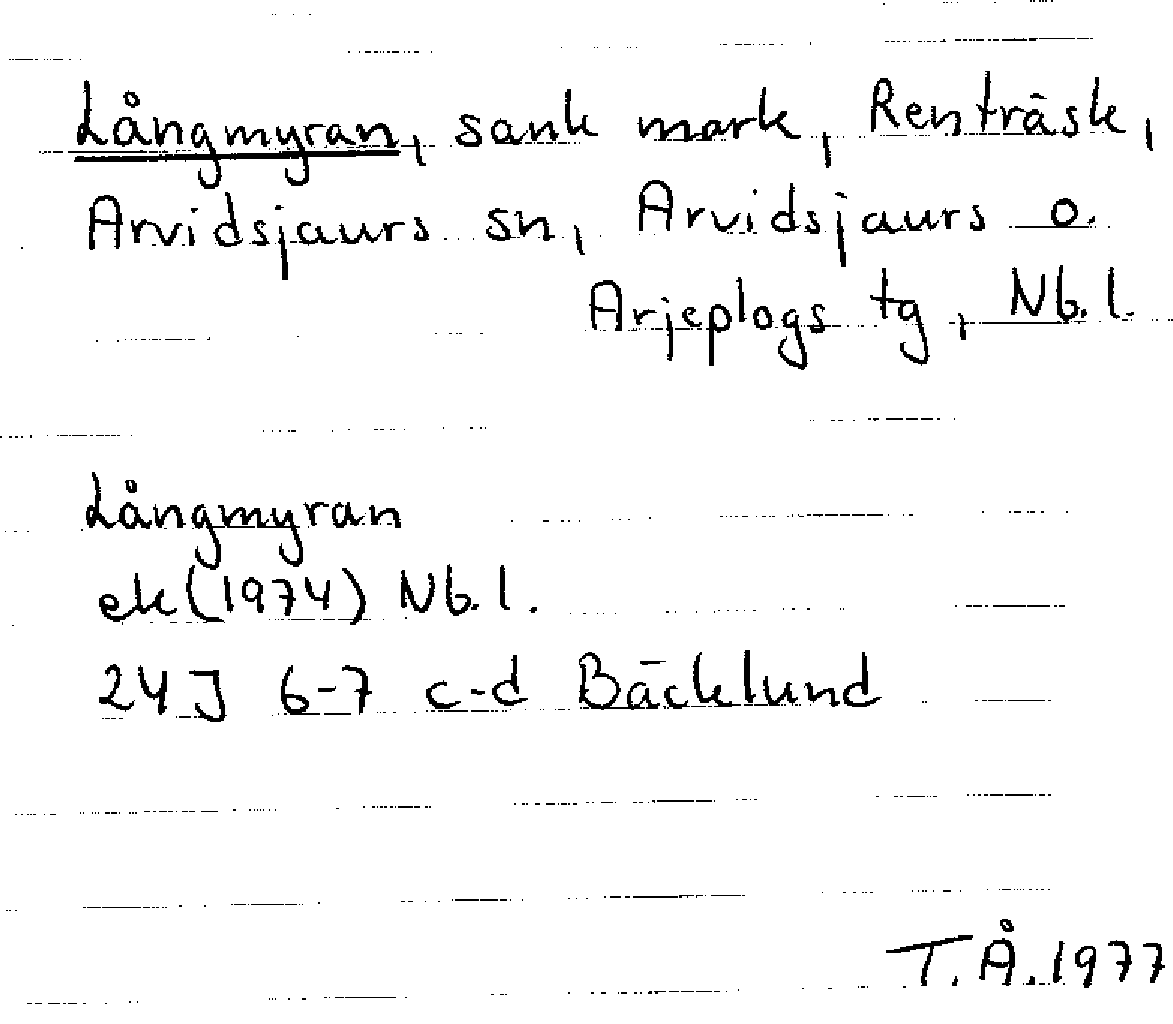 Långmyran, sank mark, Renträsk,
Arvidsjaurs sn, Arvidsjaurs o.
Arjeplogs tg, Nb.l.
Långmyran
ek (1974) Nb.l.
24J 6-7 c-d Bäcklund
T.Å.1977